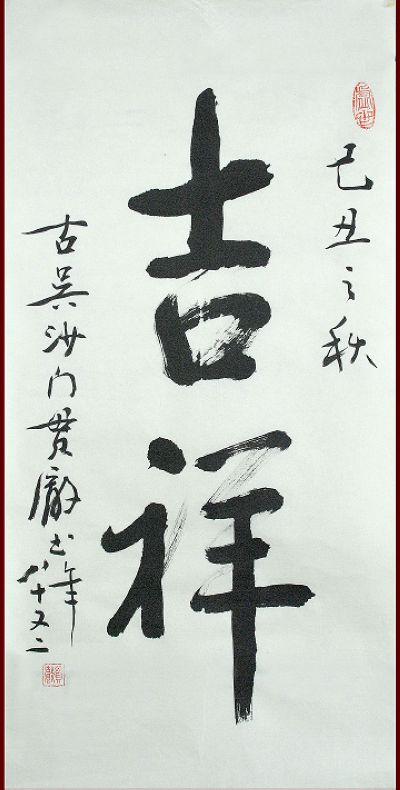 己丑之秋
吉祥
古吴沙门贯彻书年
八十又二